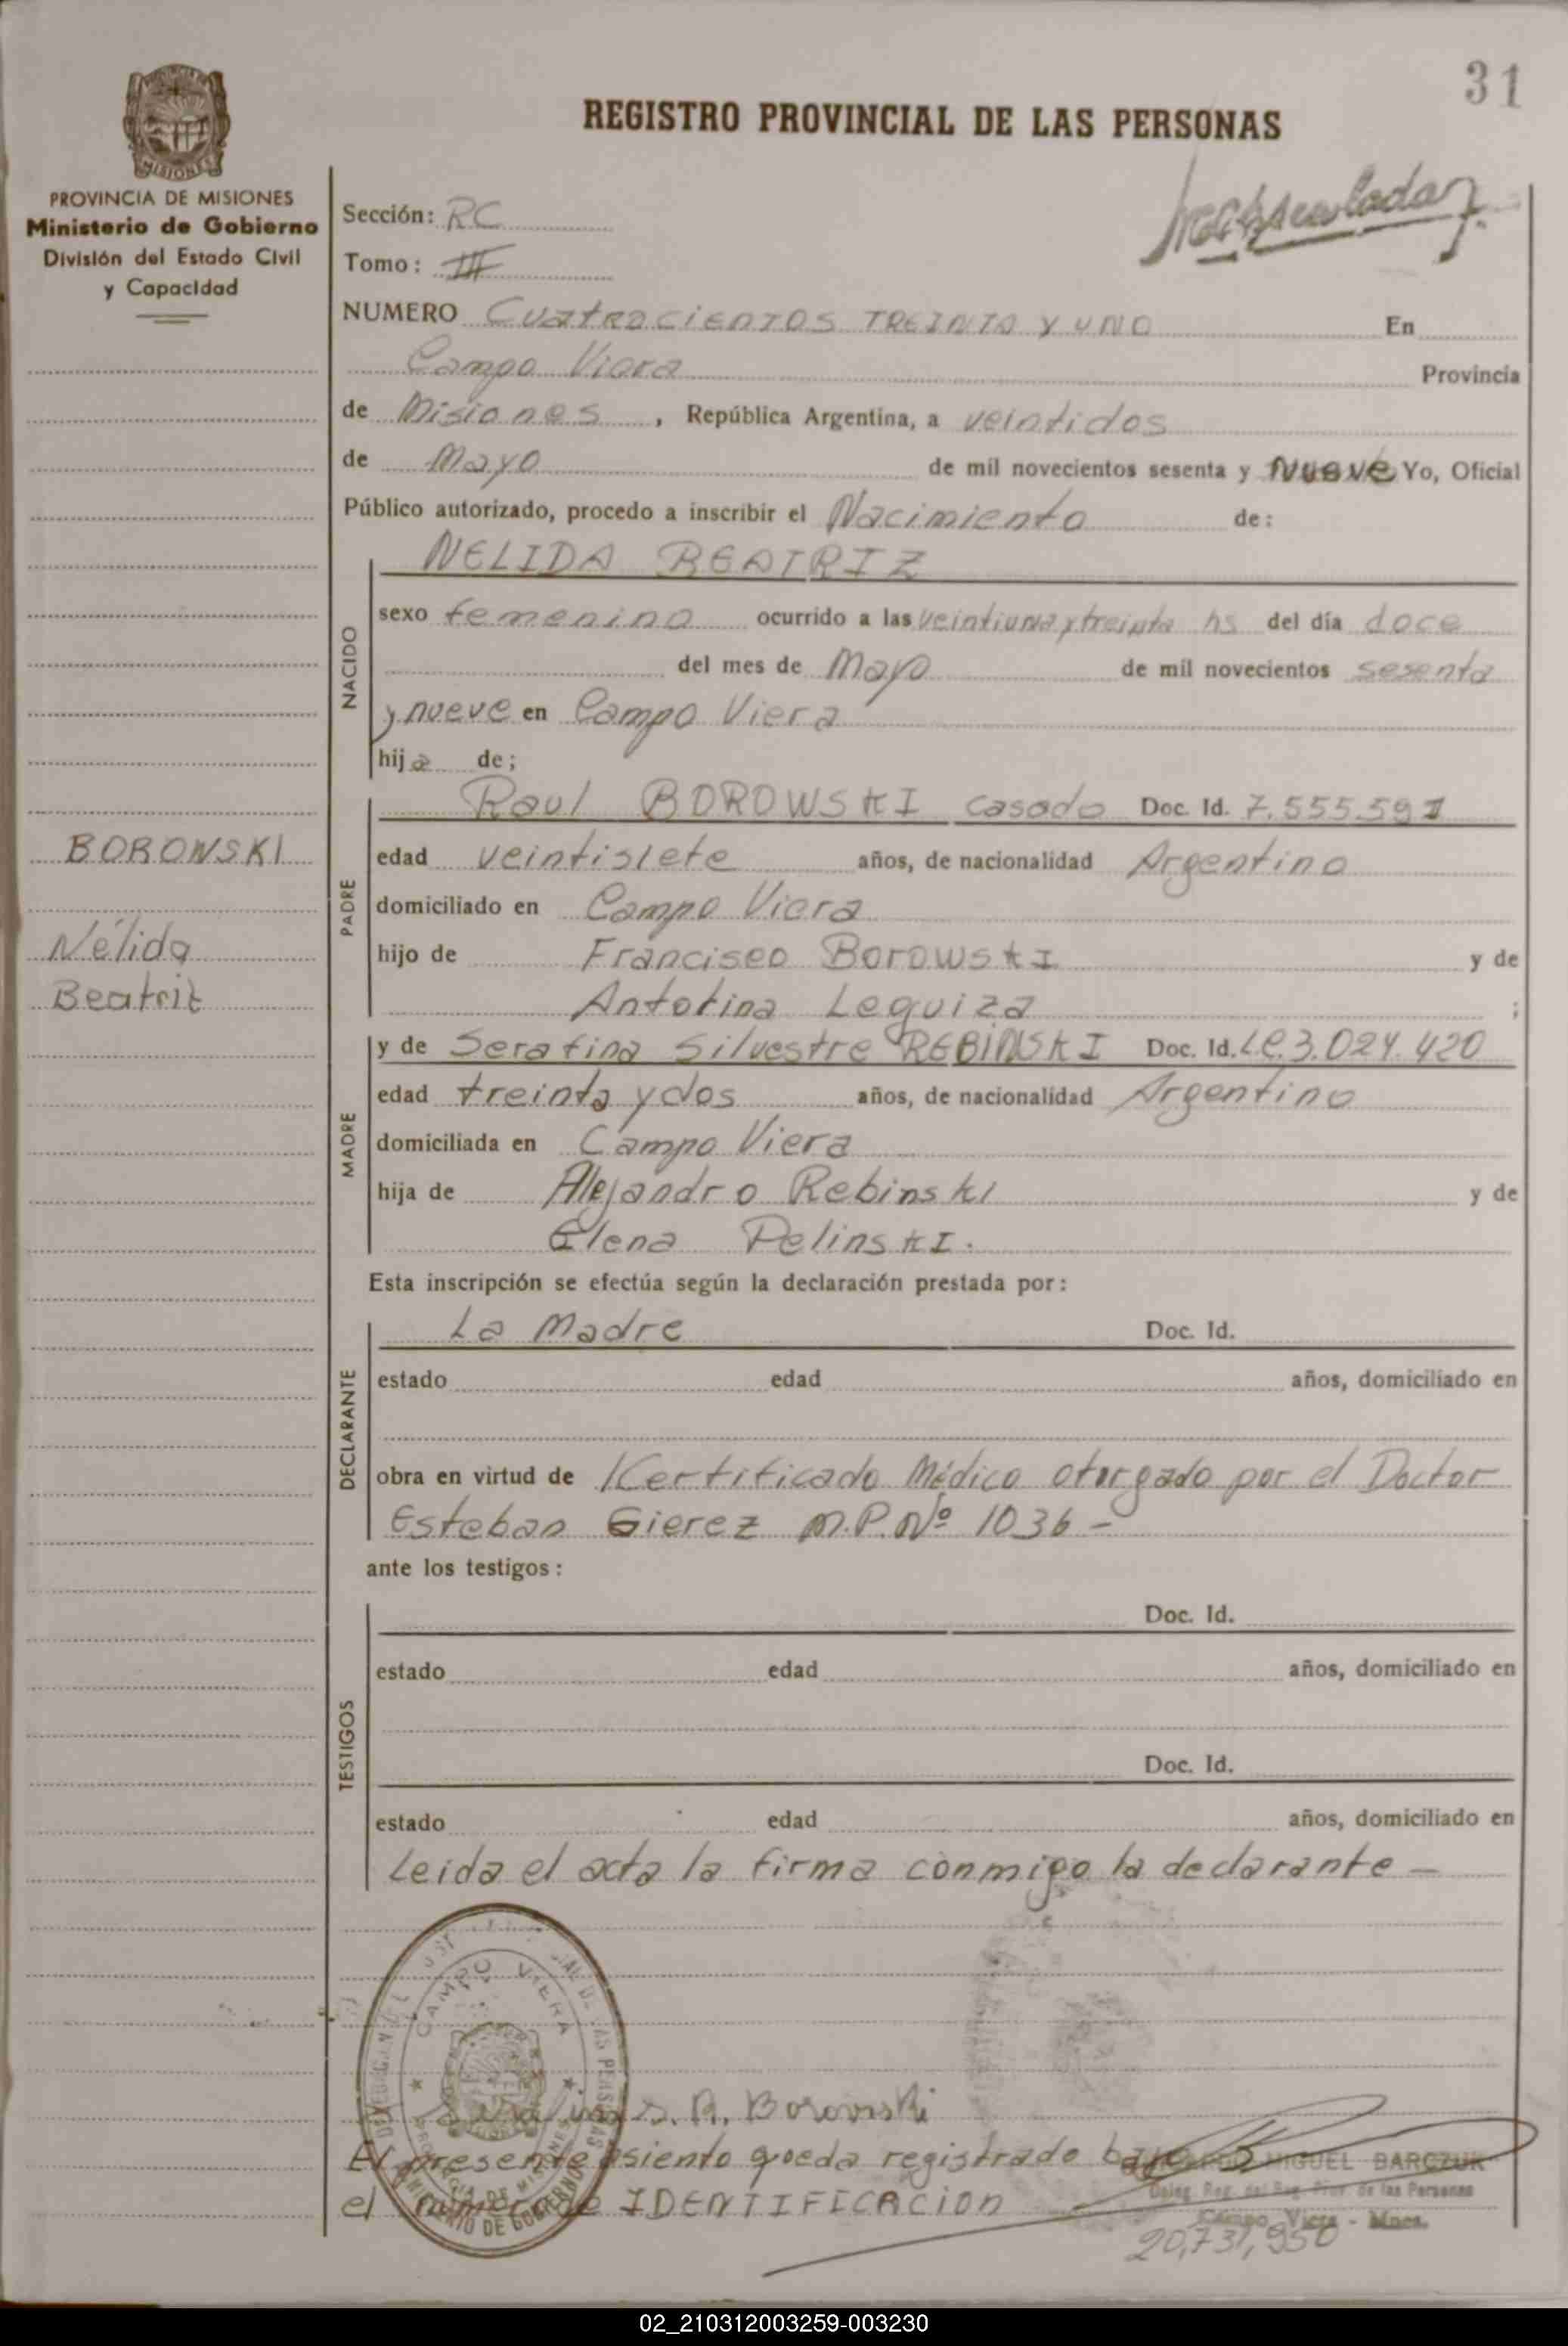 31
REGISTRO PROVINCIAL DE LAS PERSONAS
MISIONES
PROVINCIA DE MISIONES
Ministerio de Gobierno
División del Estado Civil
y Capacidad
Sección: RC
Tomo: III
NUMERO Cuatrocientos TREINTA Y UNO En
Campo Viera Provincia
de Misiones, República Argentina, a veintidos
de Mayo de mil novecientos sesenta y Nueve Yo, Oficial
Público autorizado, procedo a inscribir el Nacimiento de:
NELIDA BEATRIZ
NACIDO
sexo femenino ocurrido a las veintiuna y treinta hs del día doce
del mes de Mayo de mil novecientos sesenta
y nueve en Campo Viera
hija de;
Raul BOROWSKI casado Doc. Id. 7.555.591
BOROWSKI
Nélida
Beatriz
PADRE
edad veintisiete años, de nacionalidad Argentino
domiciliado en Campo Viera
hijo de Francisco Borowski y de
Antotina Leguiza ;
y de Serafina Silvestre REBINSKI Doc. Id. LC.3.024.420
MADRE
edad treinta y dos años, de nacionalidad Argentina
domiciliada en Campo Viera
hija de Alejandro Rebinski y de
Elena Pelinski.
Esta inscripción se efectúa según la declaración prestada por:
DECLARANTE
La Madre Doc. Id.
estado edad años, domiciliado en
obra en virtud de Certificado Médico otorgado por el Doctor
Esteban Gierez M.P.Nº 1036 -
ante los testigos:
TESTIGOS
Doc. Id.
estado edad años, domiciliado en
Doc. Id.
estado edad años, domiciliado en
Leida el acta la firma conmigo la declarante -
CAMPO VIERA
S. R. Borowski
El presente asiento queda registrado bajo
el numero de IDENTIFICACION
MIGUEL BARCZUK
Deleg. Reg. del Reg. Prov. de las Personas
Campo Viera - Mnes.
20,731,950
02_210312003259-003230